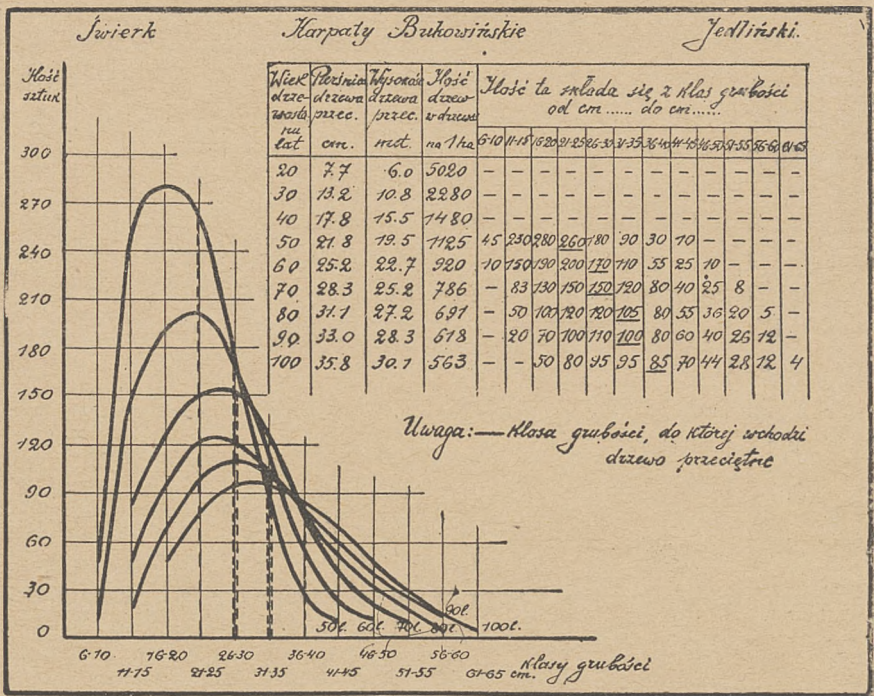 Świerk Karpaty Bukowińskie Jedliński.
Ilość sztuk
Wiek drze-wostanu lat | Pierśnica drzewa przec. cm. | Wysokość drzewa przec. mt. | Ilość drzew w drzewo na 1 ha | Ilość ta składa się z klas grubości od cm...... do cm......
6-10 11-15 16-20 21-25 26-30 31-35 36-40 41-45 46-50 51-55 56-60 61-65
20 7.7 6.0 5020 – – – – – – – – – – – –
30 13.2 10.8 2280 – – – – – – – – – – – –
40 17.8 15.5 1480 – – – – – – – – – – – –
50 21.8 19.5 1125 45 230 280 260 180 90 30 10 – – – –
60 25.2 22.7 920 10 150 190 200 170 110 55 25 10 – – –
70 28.3 25.2 786 – 83 130 150 150 120 80 40 25 8 – –
80 31.1 27.2 691 – 50 100 120 120 105 80 55 36 20 5 –
90 33.0 28.3 618 – 20 70 100 110 100 80 60 40 26 12 –
100 35.8 30.1 563 – – 50 80 95 95 85 70 44 28 12 4
Uwaga: — Klasa grubości, do której wchodzi
drzewo przeciętne
300
270
240
210
180
150
120
90
60
30
0
90l.
50l. 60l. 70l. 80l. 100l.
6-10 16-20 26-30 36-40 46-50 56-60
11-15 21-25 31-35 41-45 51-55 61-65 cm. Klasy grubości